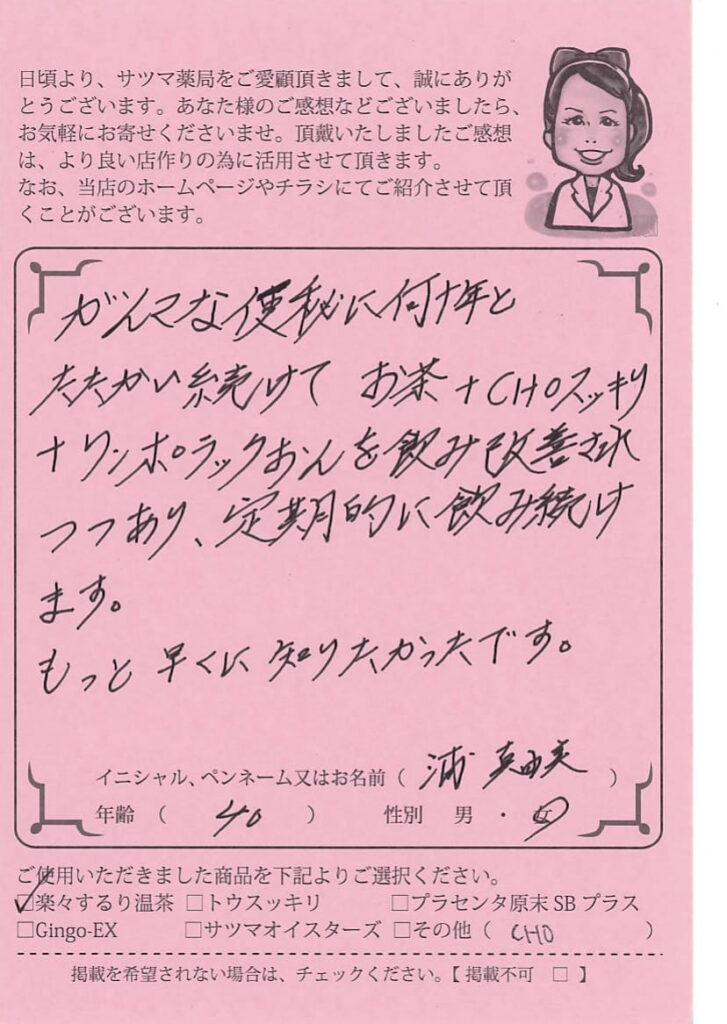 日頃より、サツマ薬局をご愛顧頂きまして、誠にありが
とうございます。あなた様のご感想などございましたら、
お気軽にお寄せくださいませ。頂戴いたしましたご感想
は、より良い店作りの為に活用させて頂きます。
なお、当店のホームページやチラシにてご紹介させて頂
くことがございます。
がんこな便秘に何十年と
たたかい続けて お茶+CHOスッキリ
+ワンポラックおんを飲み改善され
つつあり、定期的に飲み続け
ます。
もっと早くに知りたかったです。
イニシャル、ペンネーム又はお名前（ 浦 真由美 ）
年齢 （ 40 ） 性別 男 ・ 女
ご使用いただきました商品を下記よりご選択ください。
☑楽々するり温茶 □トウスッキリ □プラセンタ原末 SB プラス
□Gingo-EX □サツマオイスターズ □その他（ CHO ）
掲載を希望されない場合は、チェックください。【 掲載不可 □ 】